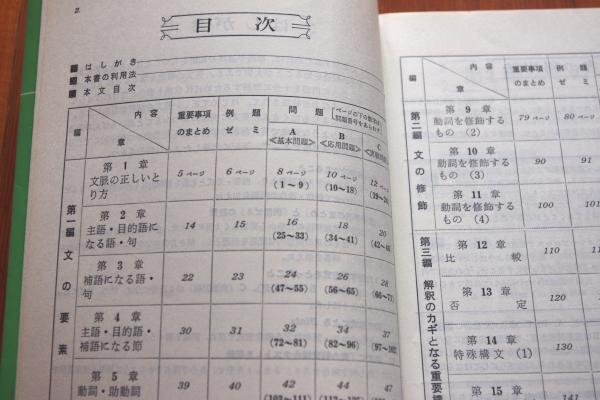 2
目 次
はしがき
本書の利用法
本文目次
編
内容
章
重要事項
のまとめ
例 題
ゼ ミ
問 題
ページの下の数字は
問題番号をあらわす
A
<基本問題>
B
<応用問題>
C
第一編 文の要素
第 1 章
文脈の正しいと
り方
5 ページ
6 ページ
8 ページ
(1~9)
10 ページ
(10~18)
12 ページ
第 2 章
主語・目的語に
なる語・句
14
15
16
(25~33)
18
(34~41)
20
第 3 章
補語になる語・
句
22
23
24
(47~55)
26
(56~65)
28
第 4 章
主語・目的語・
補語になる節
30
31
32
(72~81)
34
(82~96)
37
第 5 章
動詞・助動詞
39
40
42
44
47
編
内容
章
重要事項
のまとめ
例 題
ゼ ミ
第二編 文の修飾
第 9 章
動詞を修飾する
もの (2)
79 ページ
80 ページ
第 10 章
動詞を修飾する
もの (3)
90
91
第 11 章
動詞を修飾する
もの (4)
100
第三編 解釈のカギとなる重要構
第 12 章
比 較
110
第 13 章
否 定
120
第 14 章
特殊構文 (1)
130
第 15 章
141